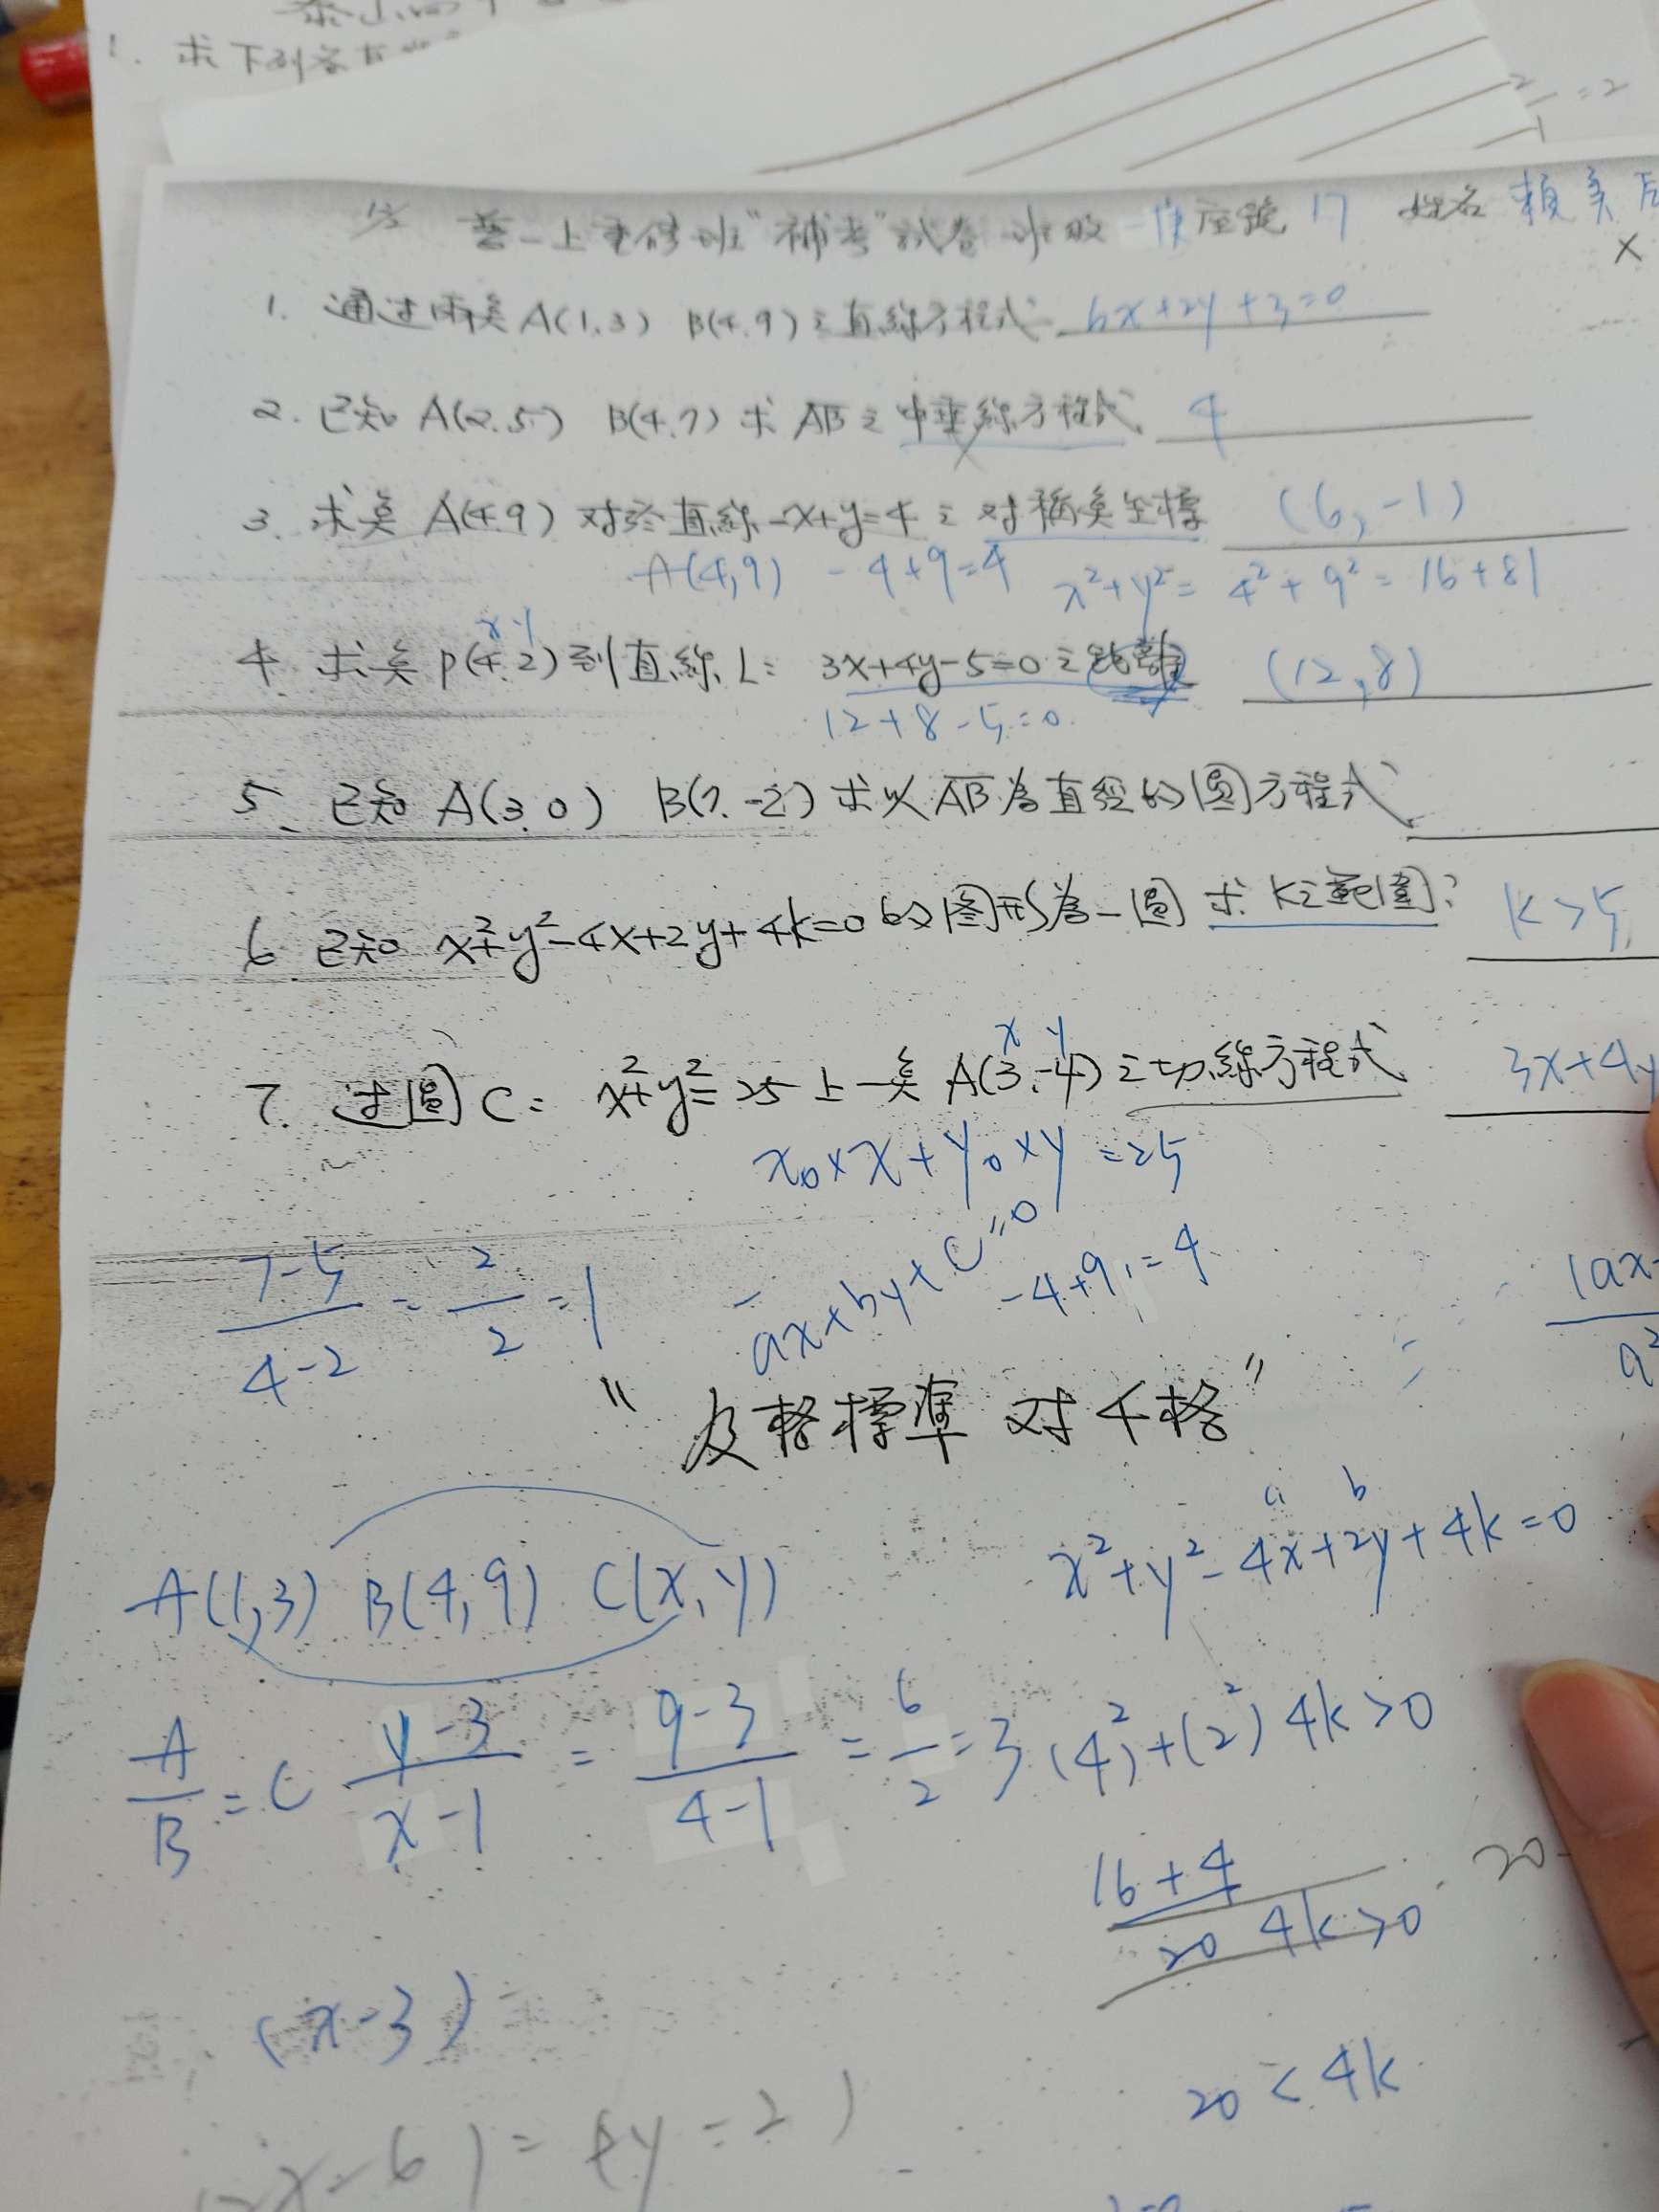 1. 求下列各
2/1 = 2
普一上重修班"補考"試卷 班級 座號 17 姓名 賴美
X
1. 通过兩点 A(1.3) B(4.9) 之直線方程式 6x+2y+3=0
2. 已知 A(2.5) B(4.7) 求 AB 之中垂線方程式 4
3. 求点 A(4.9) 対於直線 -x+y=4 之 対稱点坐標 (6,-1)
A(4,9) -4+9=4 x²+y²= 4²+9²=16+81
x y
4. 求点 P(4.2) 到直線 L: 3x+4y-5=0 之距離 (12,8)
12+8-5=0
5. 已知 A(3.0) B(7.-2) 求以 AB 為直徑的圓方程式
6. 已知 x²+y²-4x+2y+4k=0 的图形為一圓 求 k之範圍? k>5
x y
7. 过圓 C: x²+y²=25 上一点 A(3.-4) 之切線方程式 3x+4y
x₀×x+y₀×y=25
7-5/4-2 = 2/2 = 1
ax+by+c=0
-4+9=4
"及格標準 对4格"
a b
A(1,3) B(4,9) C(x,y)
x²+y²-4x+2y+4k=0
A/B = C y-3/x-1 = 9-3/4-1 = 6/2 = 3
(4)²+(2)² 4k>0
16+4
20 4k>0
20-
(x-3)
20<4k
x-6)=(y=2)